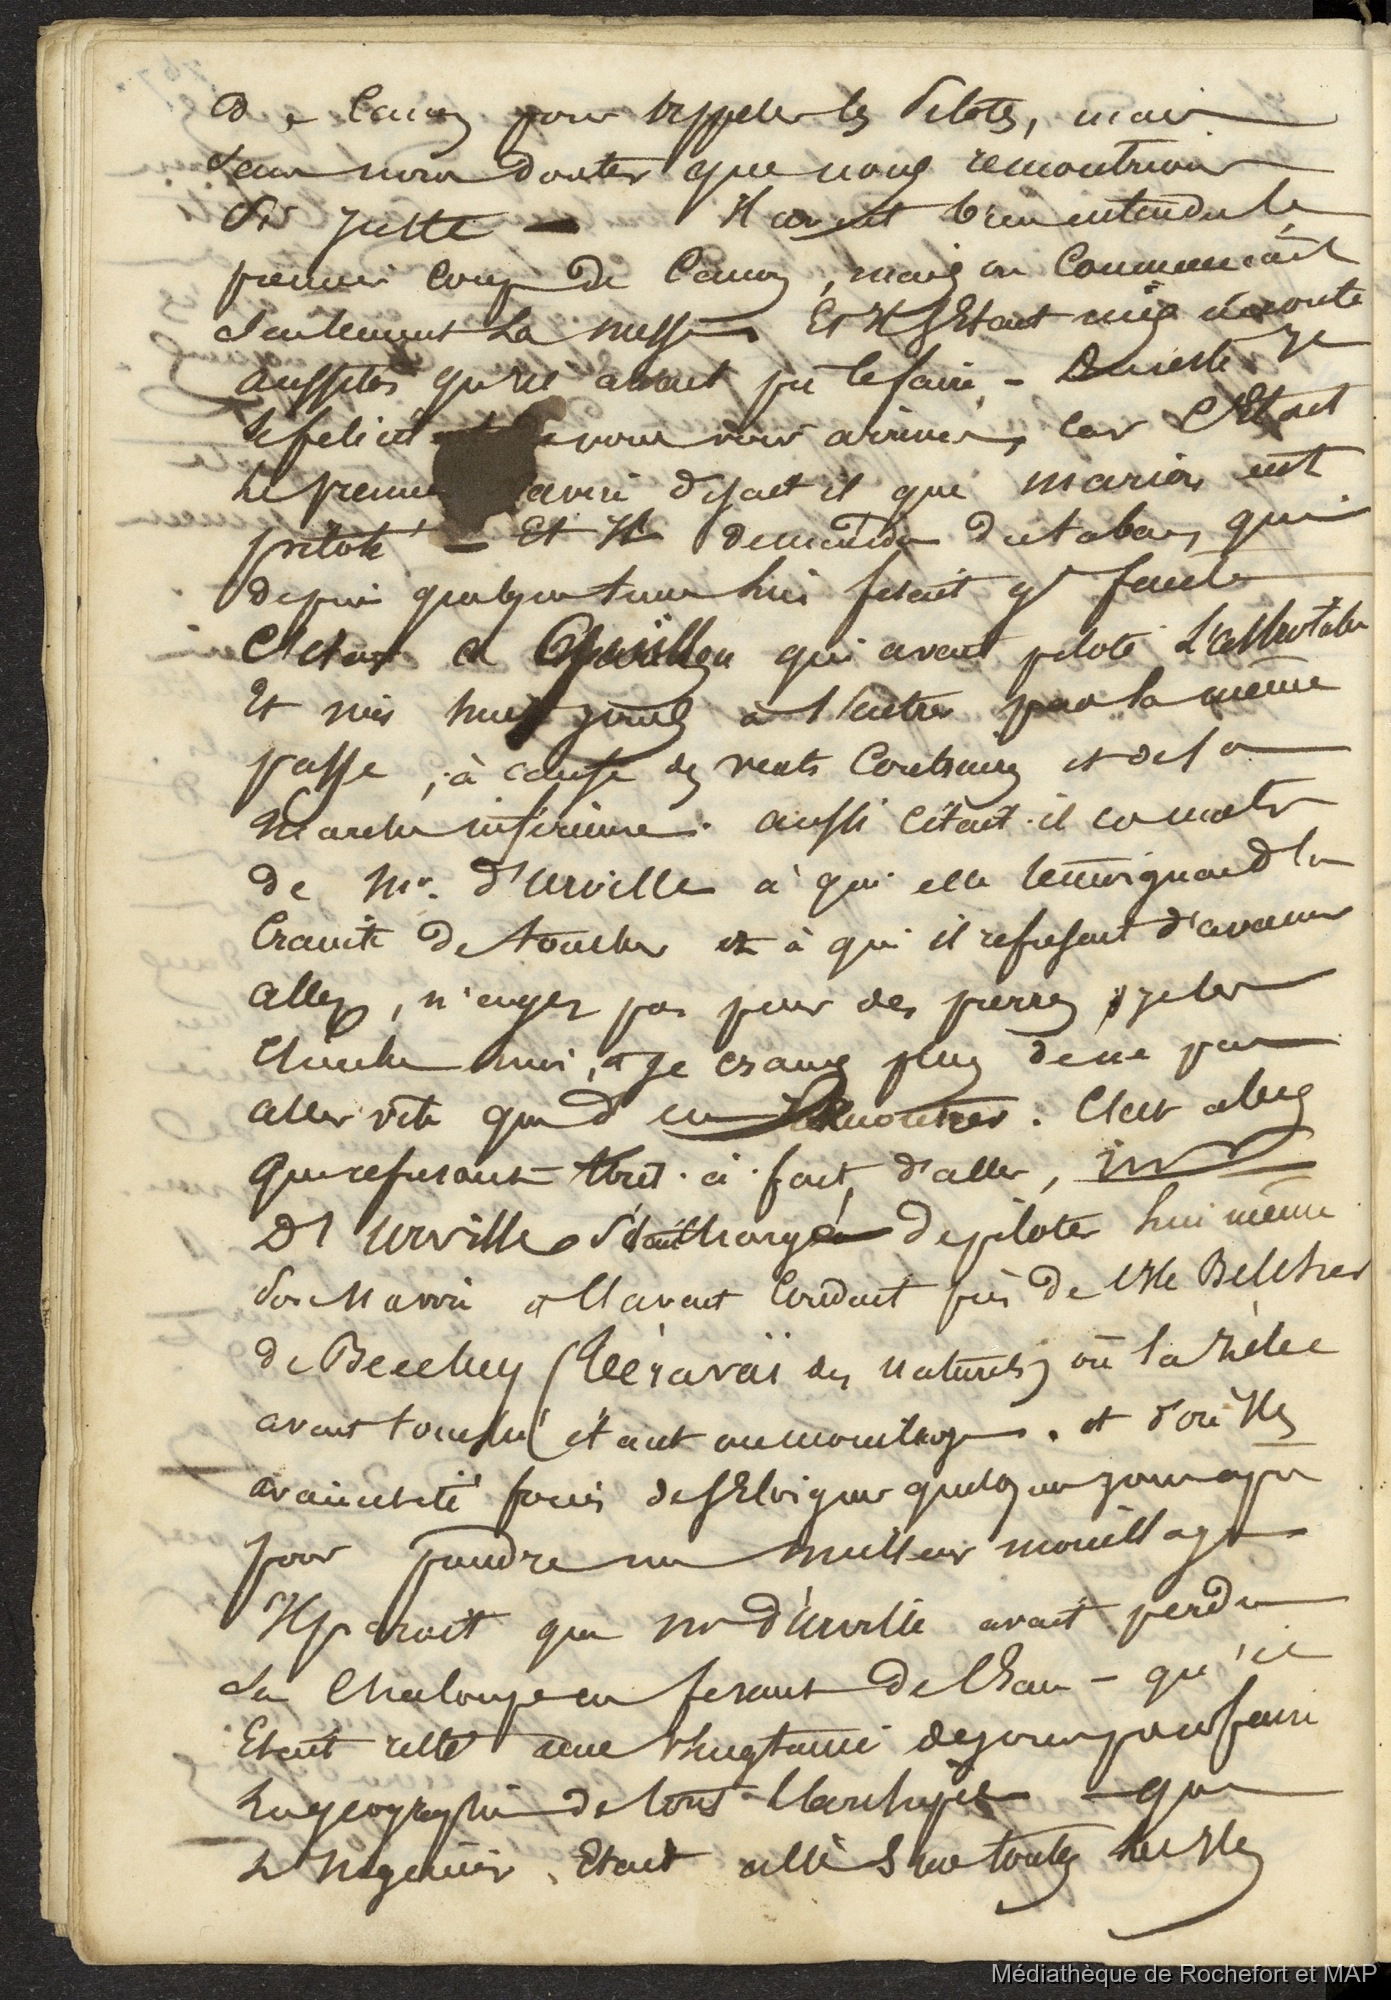 de Canon pour rappeler les Pilotes, mais
sans nous douter que nous remontrions
si juste — Il avait bien entendu le
premier coup de Canon, mais on Commencait
seulement La messe. Et Il s'Etait mis en route
aussitôt qu'il avait pu le faire - Du reste Je
le felicite de vous voir arriver, car C'Etait
le premier navire disait il que marion eut
piloté — Et Il demanda du tabac, qui
depuis quelque tems lui fesait gd faute
C'etait qui avait pilote L'astrolabe
Et mis huit jours à l'entrer par la même
passe, à cause des vents Contraires et de sa
Marche inferieure. aussi c'etait il
de Mr. d'Urville à qui elle temoignait la
Crainte de toucher et à qui il refusait d'avancer
allez, n'ayez pas peur des pierres, je les
cherche moi, et Je crains plus de ne pas
aller vite que d'en rencontrer. C'est alors
que refusant tout-à-fait d'aller, mr
D'Urville s'etait chargé de piloter lui même
son Navire et l'avait Conduit près de l'Ile Belcher
de Beechey (des naturels) où la Zélée
avait touché etant au mouillage. et d'où Ils
avaient été forcés de s'Eloigner quelques jours après
pour prendre un meilleur mouillage
Il paroit que mr d'Urville avait perdu
Sa Chaloupe en fesant de l'Eau - qu'il
Etait resté une vingtaine de jours pour faire
La geographie de tout l'archipel - que
L'Ingenieur Etait allé sur toutes les Iles
Médiathèque de Rochefort et MAP